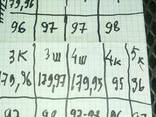 179,96
96 97 97 98
3к 3ш 4ш 4к 5к
179,96 179,97 179,95 95 96